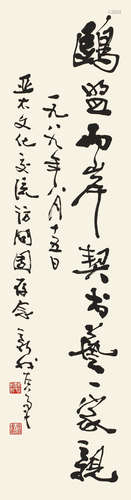 鷗盟兩岸契書藝一家親
一九八九年八月十五日
亞太文化交流訪問團存念